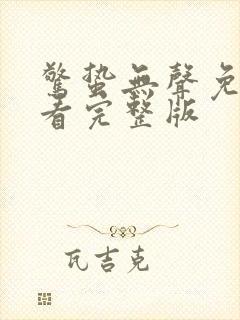 驚蟄無聲免
看完整版
瓦吉克